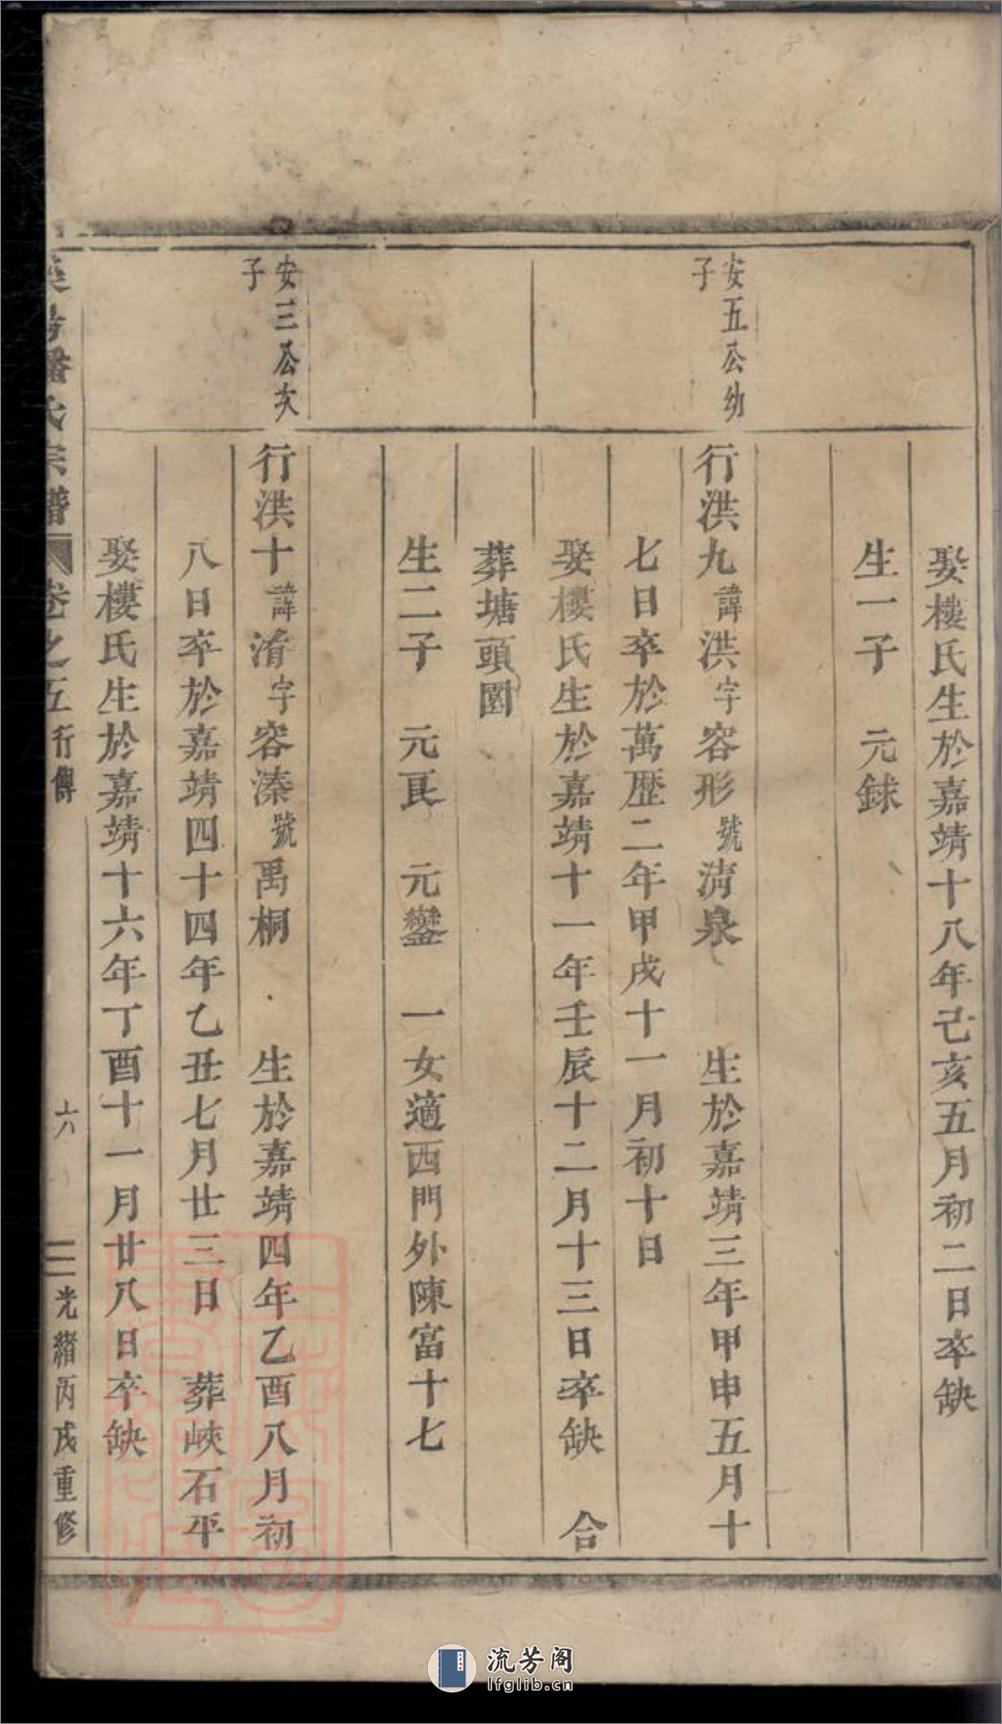 娶樓氏生於嘉靖十八年己亥五月初二日卒缺
生一子　元銶
安五公幼
子
行洪九諱洪字容形號清泉　生於嘉靖三年甲申五月十
七日卒於萬歴二年甲戌十一月初十日
娶樓氏生於嘉靖十一年壬辰十二月十三日卒缺　合
葬塘頭園
生二子　元良　元鑾　一女適西門外陳富十七
安三公次
子
行洪十諱淯字容溱號禹桐　生於嘉靖四年乙酉八月初
八日卒於嘉靖四十四年乙丑七月廿三日　葬峽石平
娶樓氏生於嘉靖十六年丁酉十一月廿八日卒缺
氏宗譜　卷之五行傳　六　光緒丙戌重修
流芳阁
lfglib.cn